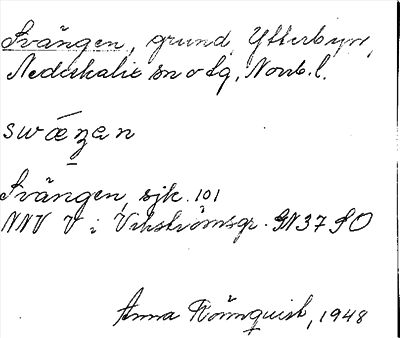 Svängen, grund, Ytterbyn,
Nederkalix sn o tg, Norrb. l.
swæŋan
Svängen, sjk. 101
NNV V i Vikströmsgr. GN37 SO
Anna Römquist, 1948